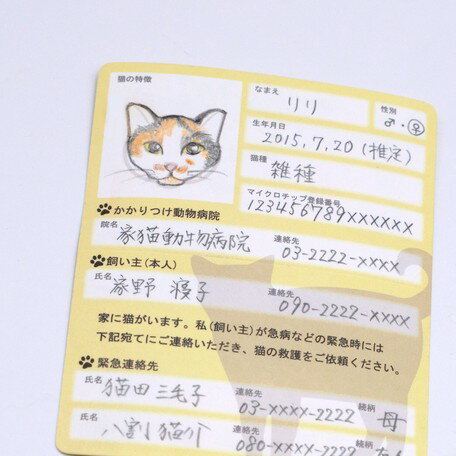 猫の特徴
なまえ リリ
性別 ♂・♀
生年月日
2015,7,20(推定)
猫種 雑種
マイクロチップ登録番号
123456789xxxxxx
かかりつけ動物病院
院名 家猫動物病院 連絡先 03-2222-xxxx
飼い主(本人)
氏名 家野 寝子 連絡先 090-2222-xxxx
家に猫がいます。私(飼い主)が急病などの緊急時には
下記宛てにご連絡いただき、猫の救護をご依頼ください。
緊急連絡先
氏名 猫田三毛子 連絡先 03-xxxx-2222 続柄 母
氏名 八割猫介 連絡先 080-xxxx-2222 続柄